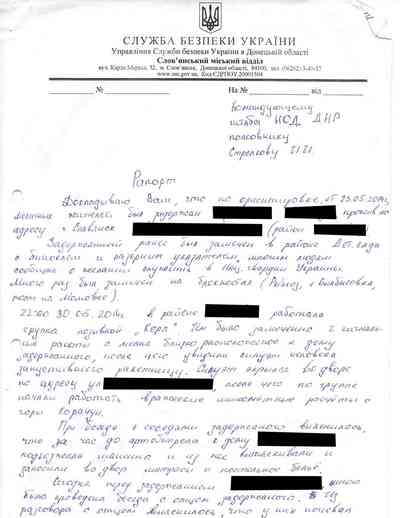 СЛУЖБА БЕЗПЕКИ УКРАЇНИ
Управління Служби безпеки України в Донецькій області
Слов'янський міський відділ
вул. Карла Маркса, 32, м. Слов'янськ, Донецької області, 84100, тел. (06262) 3-40-37
www.sbu.gov.ua, Код ЄДРПОУ 20001504
№ На № від
Командующему
штаба НОД ДНР
полковнику
Стрелкову И.И.
Рапорт
Докладываю Вам, что по ориентировке, от 23.05.2014,
местных жителей был задержан прожив. по
адресу г. Славянск (район
Задержанный ранее был замечен в районе Дет. сада
с биноклем и лазерным указателем, многим людям
сообщал о желании служить в Нац. гвардии Украины.
Много раз был замечен на блокпостах
22:00 30.05.2014г. в районе работала
группа позывной "Керч". Им было замечено 2 сигналь
ния ракеты с места близко расположенного к дому
задержанного, после чего увидели силуэт человека
запустившего ракетницу. Силуэт скрылся во дворе
по адресу ул после чего по группе
начали работать вражеские минометные расчёты с
горы Карачун.
При беседе с соседями задержанного выяснилось,
что за час до артобстрела к дому
подъезжала машина и из нее вытаскивали и
заносили во двор матрасы и постельное бельё.
Сегодня перед задержанием мною
была проведена беседа с отцом задержанного. Из
разговора с отцом выяснилось, что у них ночевал